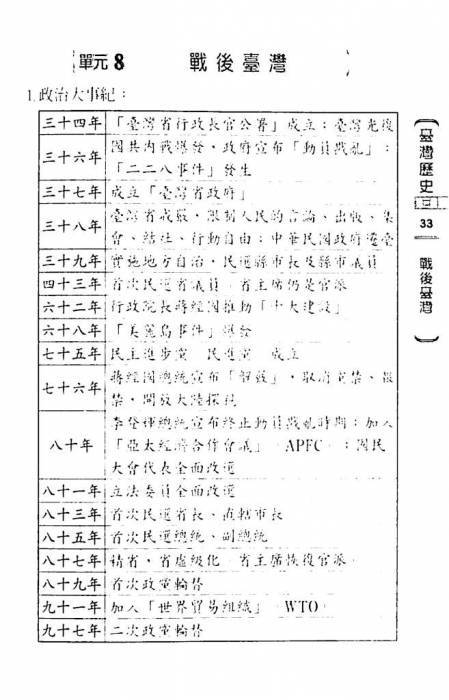 單元 8 戰後臺灣
1.政治大事紀：
三十四年 「臺灣省行政長官公署」成立；臺灣光復
三十六年 國共內戰爆發，政府宣布「動員戡亂」；
「二二八事件」發生
三十七年 成立「臺灣省政府」
三十八年 臺灣省戒嚴，限制人民的言論、出版、集
會、結社、行動自由；中華民國政府遷臺
三十九年 實施地方自治，民選縣市長及縣市議員
四十三年 首次民選省議員，省主席仍是官派
六十二年 行政院長蔣經國推動「十大建設」
六十八年 「美麗島事件」爆發
七十五年 民主進步黨 民進黨 成立
七十六年 蔣經國總統宣布「解嚴」，取消黨禁、報
禁，開放大陸探親
八十年 李登輝總統宣布終止動員戡亂時期；加入
「亞太經濟合作會議」 APEC ；國民
大會代表全面改選
八十一年 立法委員全面改選
八十三年 首次民選省長、直轄市長
八十五年 首次民選總統、副總統
八十七年 精省，省虛級化，省主席恢復官派
八十九年 首次政黨輪替
九十一年 加入「世界貿易組織」 WTO
九十七年 二次政黨輪替
臺灣歷史
33
戰後臺灣